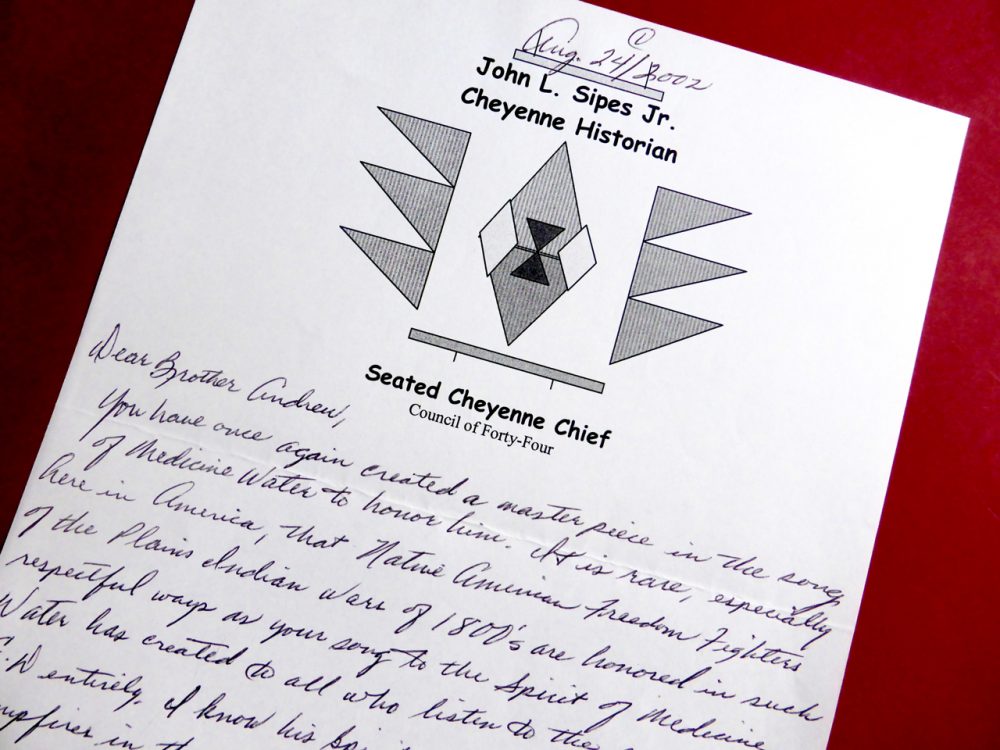 ①
Aug. 24/2002
John L. Sipes Jr.
Cheyenne Historian
Seated Cheyenne Chief
Council of Forty-Four
Dear Brother Andrew,
You have once again created a master piece in the song
of Medicine Water to honor him. It is rare, especially
here in America, that Native American Freedom Fighters
of the Plains Indian Wars of 1800's are honored in such
respectful ways as your song to the Spirit of Medicine
Water has created to all who listen to the
C.D entirely. I know his
in